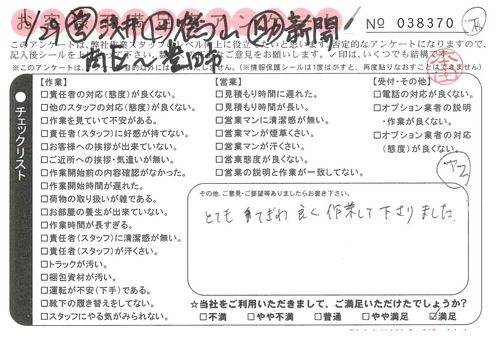 No 038370
このアンケートは、弊社作業スタッフのレベル向上に役立てたいと思います。否定的なアンケートになりますが、
記入後シールを
ご意見をお願いします。✓印は、いくつでも結構です。
(※情報保護シールは1度はがすと、再度貼りなおすことはできません)
チェックリスト
【作業】
□責任者の対応(態度)が良くない。
□他のスタッフの対応(態度)が良くない。
□作業を見ていて不安がある。
□責任者(スタッフ)に好感が持てない。
□お客様への挨拶が出来ていない。
□ご近所への挨拶・気遣いが無い。
□作業開始前の内容確認がなかった。
□作業開始時間が遅れた。
□荷物の取り扱いが雑である。
□お部屋の養生が出来ていない。
□作業時間が長すぎる。
□責任者(スタッフ)に清潔感が無い。
□責任者(スタッフ)が汗くさい。
□トラックが汚い。
□梱包資材が汚い。
□運転が不安(下手)である。
□靴下の履き替えをしてない。
□スタッフにやる気がみられない。
【営業】
□見積もり時間に遅れた。
□見積もり時間が長い。
□営業マンに清潔感が無い。
□営業マンが煙草くさい。
□営業マンが汗くさい。
□営業態度が良くない。
□営業の説明と作業が一致してない。
【受付・その他】
□電話の対応が良くない。
□オプション業者の説明
・作業が良くない。
□オプション業者の対応
(態度)が良くない。
その他、ご意見・ご要望等ありましたらお書き下さい。
とても手ぎわ良く作業して下さりました。
☆当社をご利用いただきまして、ご満足いただけたでしょうか?
□不満 □やや不満 □普通 □やや満足 ☑満足